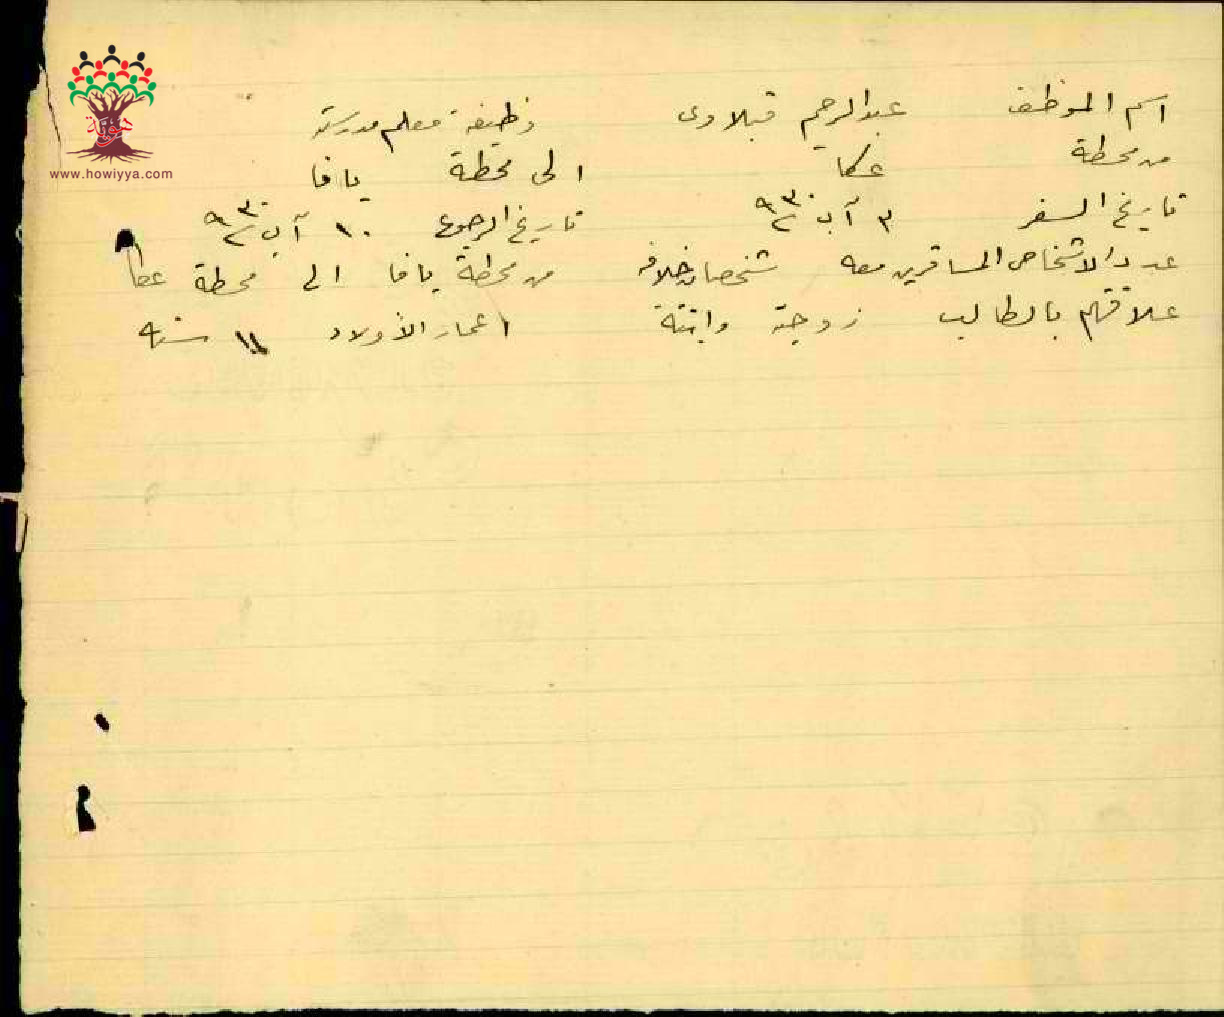 هوية
www.howiyya.com
اسم الموظف عبدالرحيم قبلاوى وظيفة معلم مدرسة
من محطة عكا الى محطة يافا
تاريخ السفر ٣ آب ٩٣٠ تاريخ الرجوع ١٠ آب ٩٣٠
عدد الاشخاص المسافرين معه شخصان خلافه من محطة يافا الى محطة عكا
علاقتهم بالطالب زوجته وابنته اعمار الأولاد ١١ سنه